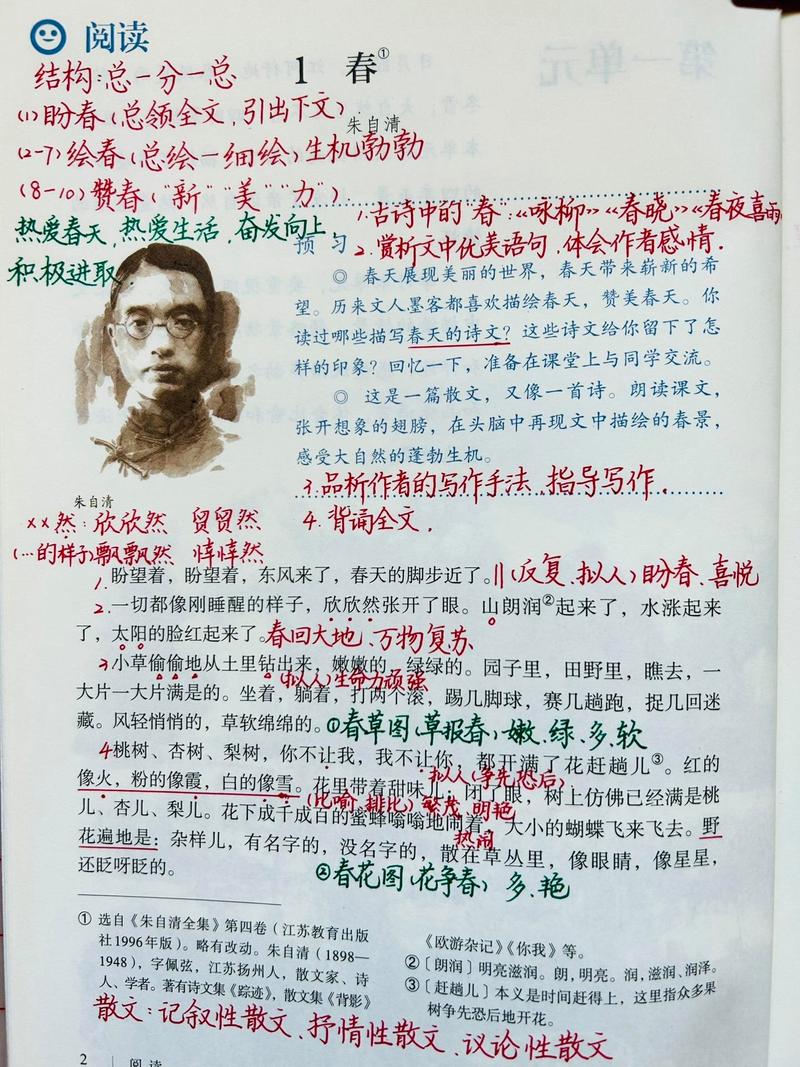 阅读
1 春①
结构:总一分一总
(1)盼春(总领全文,引出下文)
朱自清
(2-7)绘春(总绘一细绘)生机勃勃
(8-10)赞春("新""美""力")
热爱春天,热爱生活,奋发向上,
积极进取
1.古诗中的"春":《咏柳》《春晓》《春夜喜雨
预习
2.赏析文中优美语句,体会作者感情.
◎ 春天展现美丽的世界,春天带来崭新的希
望。历来文人墨客都喜欢描绘春天,赞美春天。你
读过哪些描写春天的诗文?这些诗文给你留下了怎
样的印象?回忆一下,准备在课堂上与同学交流。
◎ 这是一篇散文,又像一首诗。朗读课文,
张开想象的翅膀,在头脑中再现文中描绘的春景,
感受大自然的蓬勃生机。
3.品析作者的写作手法,指导写作.
4.背诵全文.
朱自清
××然:欣欣然 贸贸然
(…的样子)飘飘然 悻悻然
1.盼望着,盼望着,东风来了,春天的脚步近了。‖(反复、拟人)盼春、喜悦
2.一切都像刚睡醒的样子,欣欣然张开了眼。山朗润②起来了,水涨起来
了,太阳的脸红起来了。春回大地、万物复苏
3小草偷偷地从土里钻出来,嫩嫩的,绿绿的。园子里,田野里,瞧去,一
(拟人)生命力顽强
大片一大片满是的。坐着,躺着,打两个滚,踢几脚球,赛几趟跑,捉几回迷
藏。风轻悄悄的,草软绵绵的。①春草图(草报春)嫩、绿、多、软
4桃树、杏树、梨树,你不让我,我不让你,都开满了花赶趟儿③。红的
拟人(争先恐后)
像火,粉的像霞,白的像雪。花里带着甜味儿;闭了眼,树上仿佛已经满是桃
(比喻、排比)繁茂 明艳
儿、杏儿、梨儿。花下成千成百的蜜蜂嗡嗡地闹着,大小的蝴蝶飞来飞去。野
热闹
花遍地是:杂样儿,有名字的,没名字的,散在草丛里,像眼睛,像星星,
还眨呀眨的。
②春花图(花争春) 多、艳
① 选自《朱自清全集》第四卷(江苏教育出版
社1996年版)。略有改动。朱自清(1898—
1948),字佩弦,江苏扬州人,散文家、诗
人、学者。著有诗文集《踪迹》,散文集《背影》
《欧游杂记》《你我》等。
②〔朗润〕明亮滋润。朗,明亮。润,滋润、润泽。
③〔赶趟儿〕本义是时间赶得上,这里指众多果
树争先恐后地开花。
散文:记叙性散文、抒情性散文、议论性散文
2 阅读